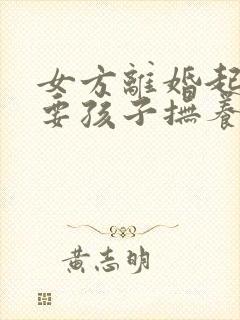 女方離婚起
要孩子撫養
黃志明